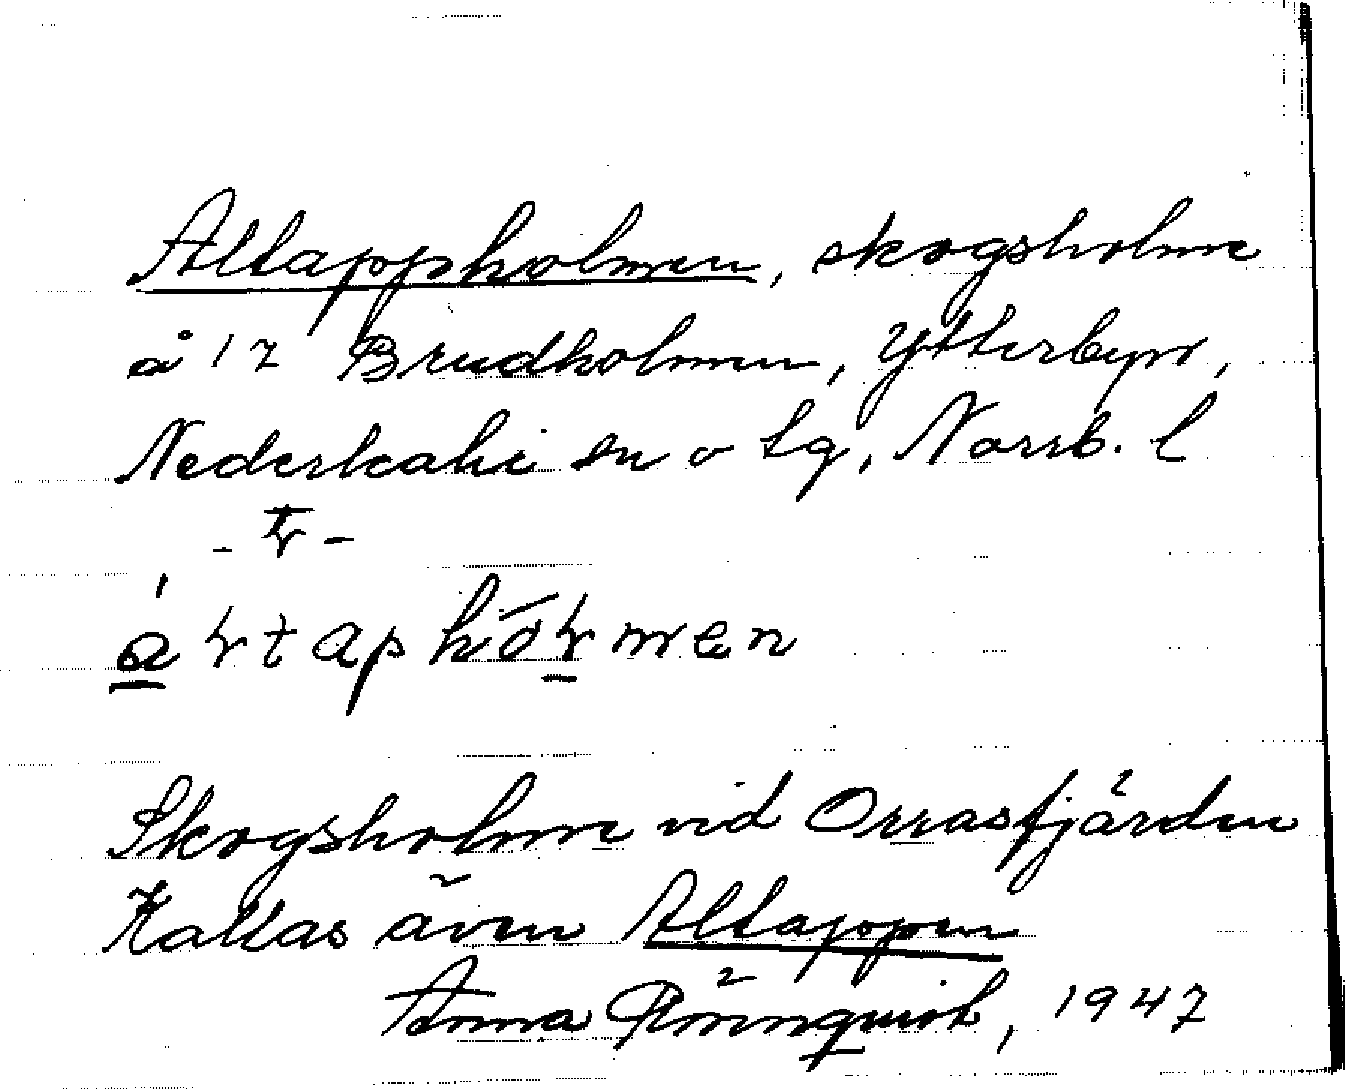 Altappholmen, skogsholme
å 1⁷ Brudholmen, Ytterbyn,
Nederkalix sn o tg, Norrb. l
Skogsholme vid Orrasfjärden
Kallas även Altappen
Anna Rönnquist, 1947